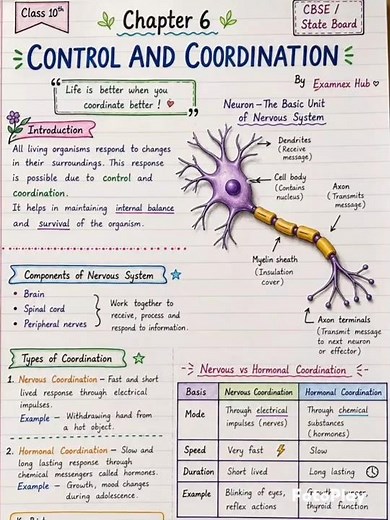 Class 10th
Chapter 6
CBSE /
State Board
CONTROL AND COORDINATION
By Examnex Hub
"Life is better when you
coordinate better !"
Neuron – The Basic Unit
of Nervous System
Introduction
All living organisms respond to changes
in their surroundings. This response
is possible due to control and
coordination.
It helps in maintaining internal balance
and survival of the organism.
Dendrites
(Receive
message)
Cell body
(Contains
nucleus)
Axon
(Transmits
message)
Myelin sheath
(Insulation
cover)
Axon terminals
(Transmit message
to next neuron
or effector)
Components of Nervous System
• Brain
• Spinal cord
• Peripheral nerves
Work together to
receive, process and
respond to information.
Types of Coordination
1. Nervous Coordination – Fast and short
lived response through electrical
impulses.
Example – Withdrawing hand from
a hot object.
2. Hormonal Coordination – Slow and
long lasting response through
chemical messengers called hormones.
Example – Growth, mood changes
during adolescence.
Nervous vs Hormonal Coordination
Basis Nervous Coordination Hormonal Coordination
Mode Through electrical Through chemical
impulses (nerves) substances
(hormones)
Speed Very fast Slow
Duration Short lived Long lasting
Example Blinking of eyes,
reflex actions thyroid function